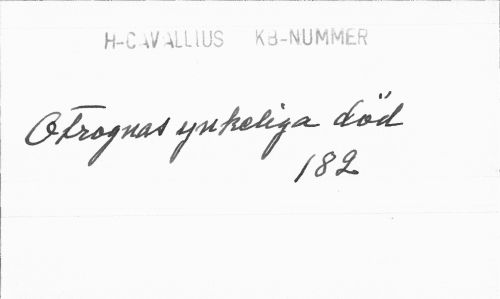 H-CAVALLIUS KB-NUMMER
Otrognas ynkeliga död
182